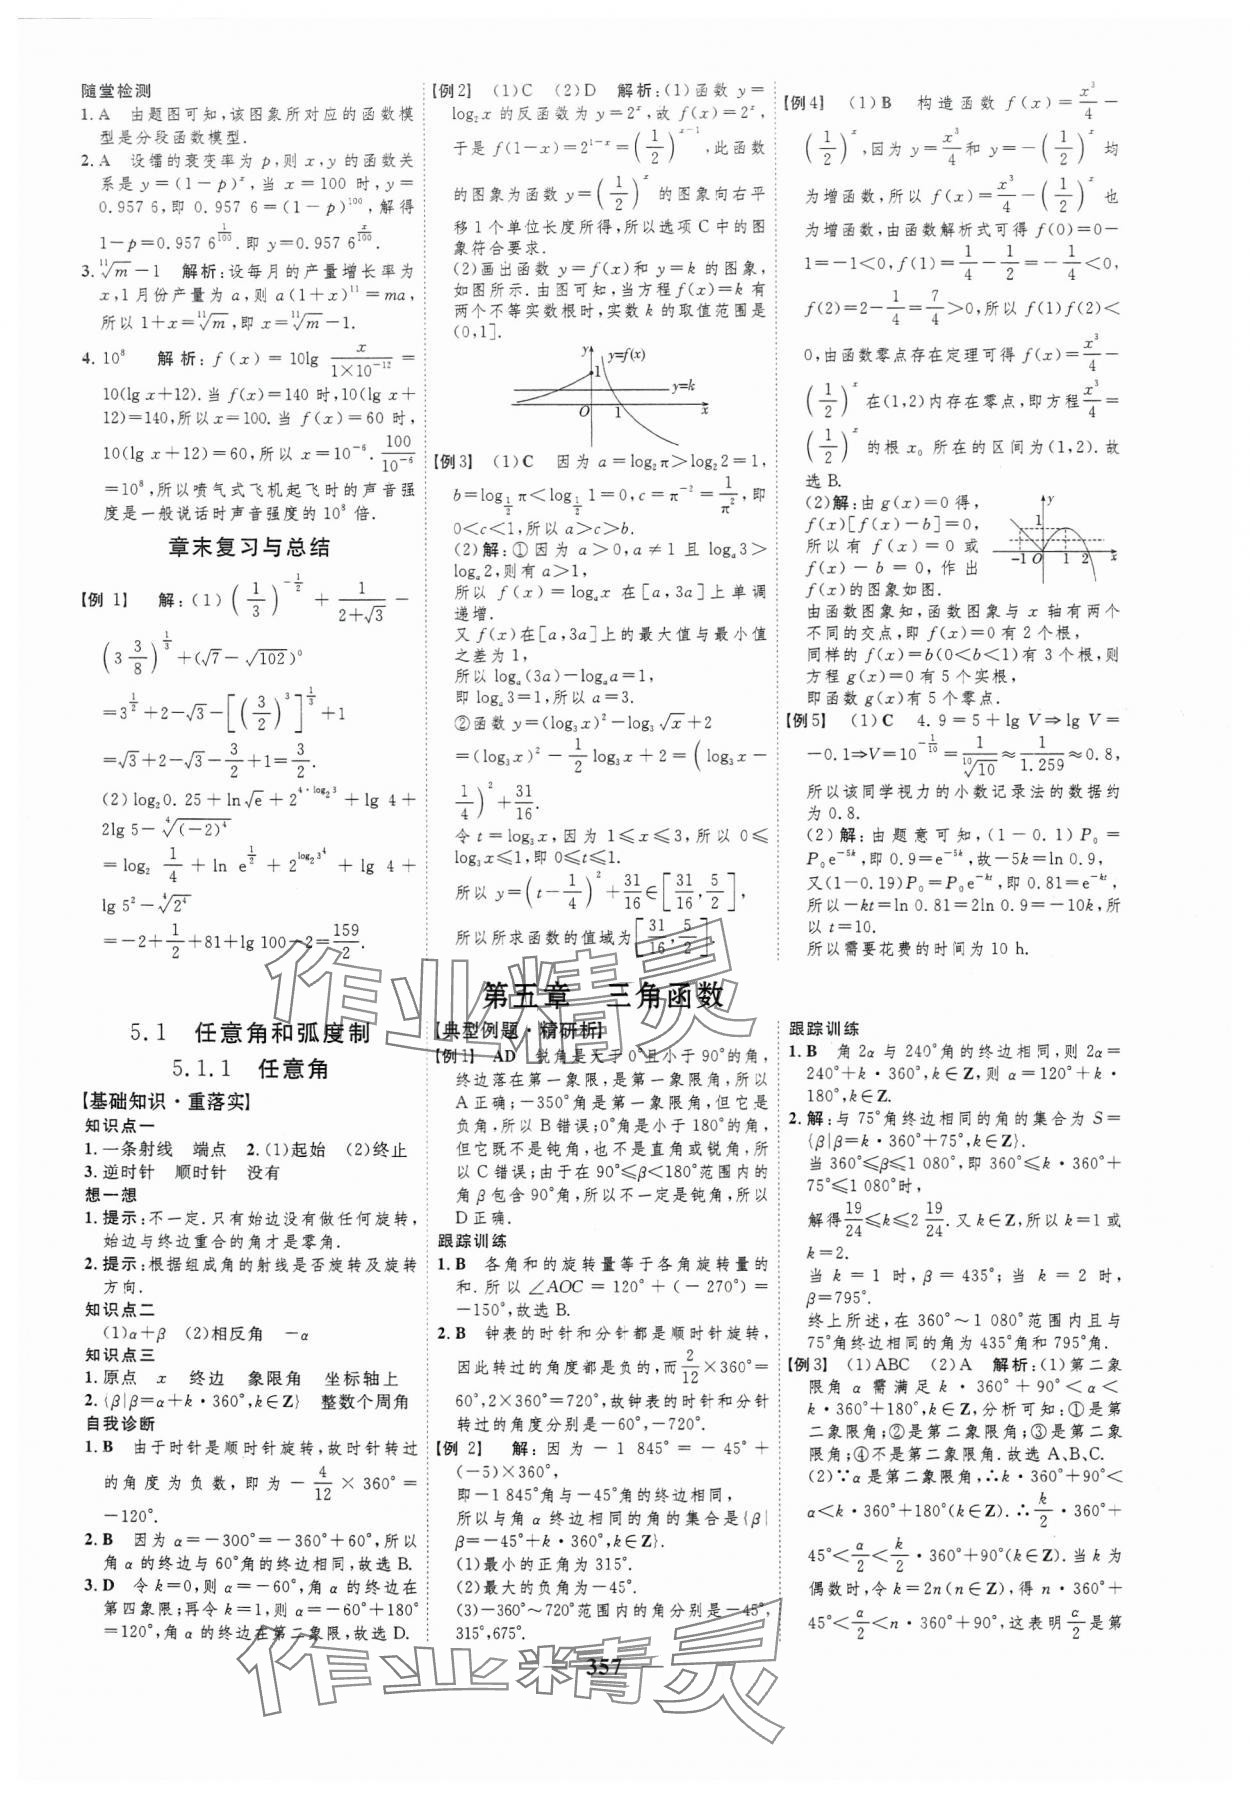 随堂检测
1. A 由题图可知,该图象所对应的函数模
型是分段函数模型.
2. A 设镭的衰变率为 p,则 x,y 的函数关
系是 y=(1-p)^x,当 x=100 时,y=
0.957 6,即 0.957 6=(1-p)^100,解得
1-p=0.957 6^(1/100).即 y=0.957 6^(x/100).
3. ¹¹√m-1 解析:设每月的产量增长率为
x,1月份产量为 a,则 a(1+x)^11=ma,
所以 1+x=¹¹√m,即 x=¹¹√m-1.
4. 10^8 解析:f(x)=10lg x/(1×10^-12)=
10(lg x+12).当 f(x)=140 时,10(lg x+
12)=140,所以 x=100.当 f(x)=60 时,
10(lg x+12)=60,所以 x=10^-6. 100/10^-6
=10^8,所以喷气式飞机起飞时的声音强
度是一般说话时声音强度的 10^8 倍.
章末复习与总结
【例 1】 解:(1)(1/3)^(-1/2)+1/(2+√3)-
(3 3/8)^(1/3)+(√7-√102)^0
=3^(1/2)+2-√3-[(3/2)^3]^(1/3)+1
=√3+2-√3-3/2+1=3/2.
(2)log₂0.25+ln√e+2^(4·log₂3)+lg 4+
2lg 5-⁴√(-2)^4
=log₂ 1/4+ln e^(1/2)+2^(log₂3^4)+lg 4+
lg 5²-⁴√2^4
=-2+1/2+81+lg 100-2=159/2.
【例2】 (1)C (2)D 解析:(1)函数 y=
log₂x 的反函数为 y=2^x,故 f(x)=2^x,
于是 f(1-x)=2^(1-x)=(1/2)^(x-1),此函数
的图象为函数 y=(1/2)^x 的图象向右平
移1个单位长度所得,所以选项C中的图
象符合要求.
(2)画出函数 y=f(x)和 y=k 的图象,
如图所示.由图可知,当方程f(x)=k 有
两个不等实数根时,实数 k 的取值范围是
(0,1].
y
y=f(x)
1
y=k
O 1 x
【例3】 (1)C 因为 a=log₂π>log₂2=1,
b=log_(1/2)π<log_(1/2)1=0,c=π^-2=1/π²,即
0<c<1,所以 a>c>b.
(2)解:①因为 a>0,a≠1 且 logₐ3>
logₐ2,则有 a>1,
所以 f(x)=logₐx 在[a,3a]上单调
递增.
又 f(x)在[a,3a]上的最大值与最小值
之差为 1,
所以 logₐ(3a)-logₐa=1,
即 logₐ3=1,所以 a=3.
②函数 y=(log₃x)²-log₃√x+2
=(log₃x)²-1/2 log₃x+2=(log₃x-
1/4)²+31/16.
令 t=log₃x,因为 1≤x≤3,所以 0≤
log₃x≤1,即 0≤t≤1.
所以 y=(t-1/4)²+31/16∈[31/16,5/2],
所以所求函数的值域为[31/16,5/2].
【例4】 (1)B 构造函数 f(x)=x³/4-
(1/2)^x,因为 y=x³/4和 y=-(1/2)^x 均
为增函数,所以 f(x)=x³/4-(1/2)^x 也
为增函数,由函数解析式可得 f(0)=0-
1=-1<0,f(1)=1/4-1/2=-1/4<0,
f(2)=2-1/4=7/4>0,所以 f(1)f(2)<
0,由函数零点存在定理可得 f(x)=x³/4-
(1/2)^x 在(1,2)内存在零点,即方程x³/4=
(1/2)^x 的根 x₀ 所在的区间为(1,2).故
选 B.
(2)解:由 g(x)=0 得,
f(x)[f(x)-b]=0,
所以有 f(x)=0 或
f(x)-b=0,作出
f(x)的图象如图.
y
1
-1 O 1 2 x
由函数图象知,函数图象与 x 轴有两个
不同的交点,即 f(x)=0有2个根,
同样的 f(x)=b(0<b<1)有3个根,则
方程 g(x)=0有5个实根,
即函数 g(x)有5个零点.
【例5】 (1)C 4.9=5+lg V⇒lg V=
-0.1⇒V=10^(-1/10)=1/¹⁰√10≈1/1.259≈0.8,
所以该同学视力的小数记录法的数据约
为 0.8.
(2)解:由题意可知,(1-0.1)P₀=
P₀e^(-5k),即 0.9=e^(-5k),故-5k=ln 0.9,
又(1-0.19)P₀=P₀e^(-kt),即 0.81=e^(-kt),
所以-kt=ln 0.81=2ln 0.9=-10k,所
以 t=10.
所以需要花费的时间为 10 h.
第五章 三角函数
5.1 任意角和弧度制
5.1.1 任意角
【基础知识·重落实】
知识点一
1.一条射线 端点 2.(1)起始 (2)终止
3.逆时针 顺时针 没有
想一想
1.提示:不一定.只有始边没有做任何旋转,
始边与终边重合的角才是零角.
2.提示:根据组成角的射线是否旋转及旋转
方向.
知识点二
(1)α+β (2)相反角 -α
知识点三
1.原点 x 终边 象限角 坐标轴上
2.{β|β=α+k·360°,k∈Z} 整数个周角
自我诊断
1. B 由于时针是顺时针旋转,故时针转过
的角度为负数,即为-4/12×360°=
-120°.
2. B 因为 α=-300°=-360°+60°,所以
角 α 的终边与 60°角的终边相同,故选 B.
3. D 令 k=0,则 α=-60°,角 α 的终边在
第四象限;再令 k=1,则 α=-60°+180°
=120°,角 α 的终边在第二象限,故选 D.
【典型例题·精研析】
【例1】 AD 锐角是大于0°且小于90°的角,
终边落在第一象限,是第一象限角,所以
A正确;-350°角是第一象限角,但它是
负角,所以B错误;0°角是小于180°的角,
但它既不是钝角,也不是直角或锐角,所
以C错误;由于在90°≤β<180°范围内的
角β包含90°角,所以不一定是钝角,所以
D正确.
跟踪训练
1. B 各角和的旋转量等于各角旋转量的
和.所以∠AOC=120°+(-270°)=
-150°,故选 B.
2. B 钟表的时针和分针都是顺时针旋转,
因此转过的角度都是负的,而2/12×360°=
60°,2×360°=720°,故钟表的时针和分针
转过的角度分别是-60°,-720°.
【例 2】 解:因为-1 845°=-45°+
(-5)×360°,
即-1 845°角与-45°角的终边相同,
所以与角 α 终边相同的角的集合是{β|
β=-45°+k·360°,k∈Z}.
(1)最小的正角为315°.
(2)最大的负角为-45°.
(3)-360°~720°范围内的角分别是-45°,
315°,675°.
跟踪训练
1. B 角 2α 与 240°角的终边相同,则 2α=
240°+k·360°,k∈Z,则 α=120°+k·
180°,k∈Z.
2.解:与 75°角终边相同的角的集合为 S=
{β|β=k·360°+75°,k∈Z}.
当 360°≤β≤1 080°,即 360°≤k·360°+
75°≤1 080°时,
解得19/24≤k≤2 19/24.又 k∈Z,所以 k=1或
k=2.
当 k=1 时,β=435°;当 k=2 时,
β=795°.
终上所述,在 360°~1 080°范围内且与
75°角终边相同的角为 435°角和 795°角.
【例3】 (1)ABC (2)A 解析:(1)第二象
限角 α 需满足 k·360°+90°<α<
k·360°+180°,k∈Z,分析可知:①是第
二象限角;②是第二象限角;③是第二象
限角;④不是第二象限角.故选A、B、C.
(2)∵α是第二象限角,∴k·360°+90°<
α<k·360°+180°(k∈Z).∴k/2·360°+
45°<α/2<k/2·360°+90°(k∈Z).当 k 为
偶数时,令 k=2n(n∈Z),得 n·360°+
45°<α/2<n·360°+90°,这表明α/2是第
357
作业精灵
作业精灵